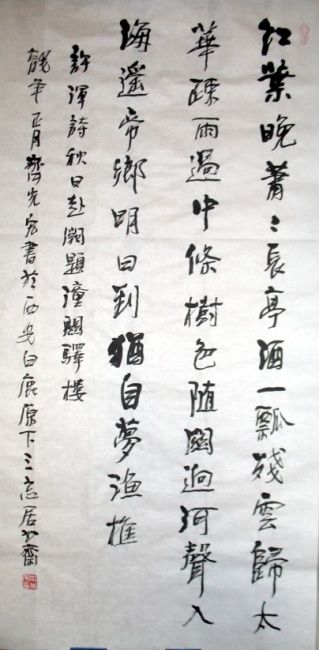 红葉晚蕭〻長亭酒一瓢殘雲歸太
華疎雨過中條樹色随關迥河聲入
海遥帝鄉明日到猶自夢漁樵
許渾詩秋日赴闕題潼關驛樓
年正月齊光宏書於西安白鹿原下三忘居齋